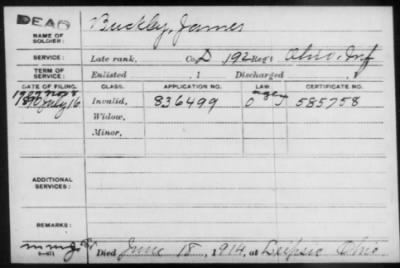 DEAD
NAME OF SOLDIER: Buckley, James
SERVICE: Late rank, Co. D 192 Reg't Ohio Inf
TERM OF SERVICE: Enlisted , 1 Discharged , 1
DATE OF FILING. CLASS. APPLICATION NO. LAW CERTIFICATE NO.
1890 July 16 Invalid, 836499 585758
Widow,
Minor,
ADDITIONAL SERVICES:
REMARKS:
Died June 18, 1914, at Leipsic Ohio